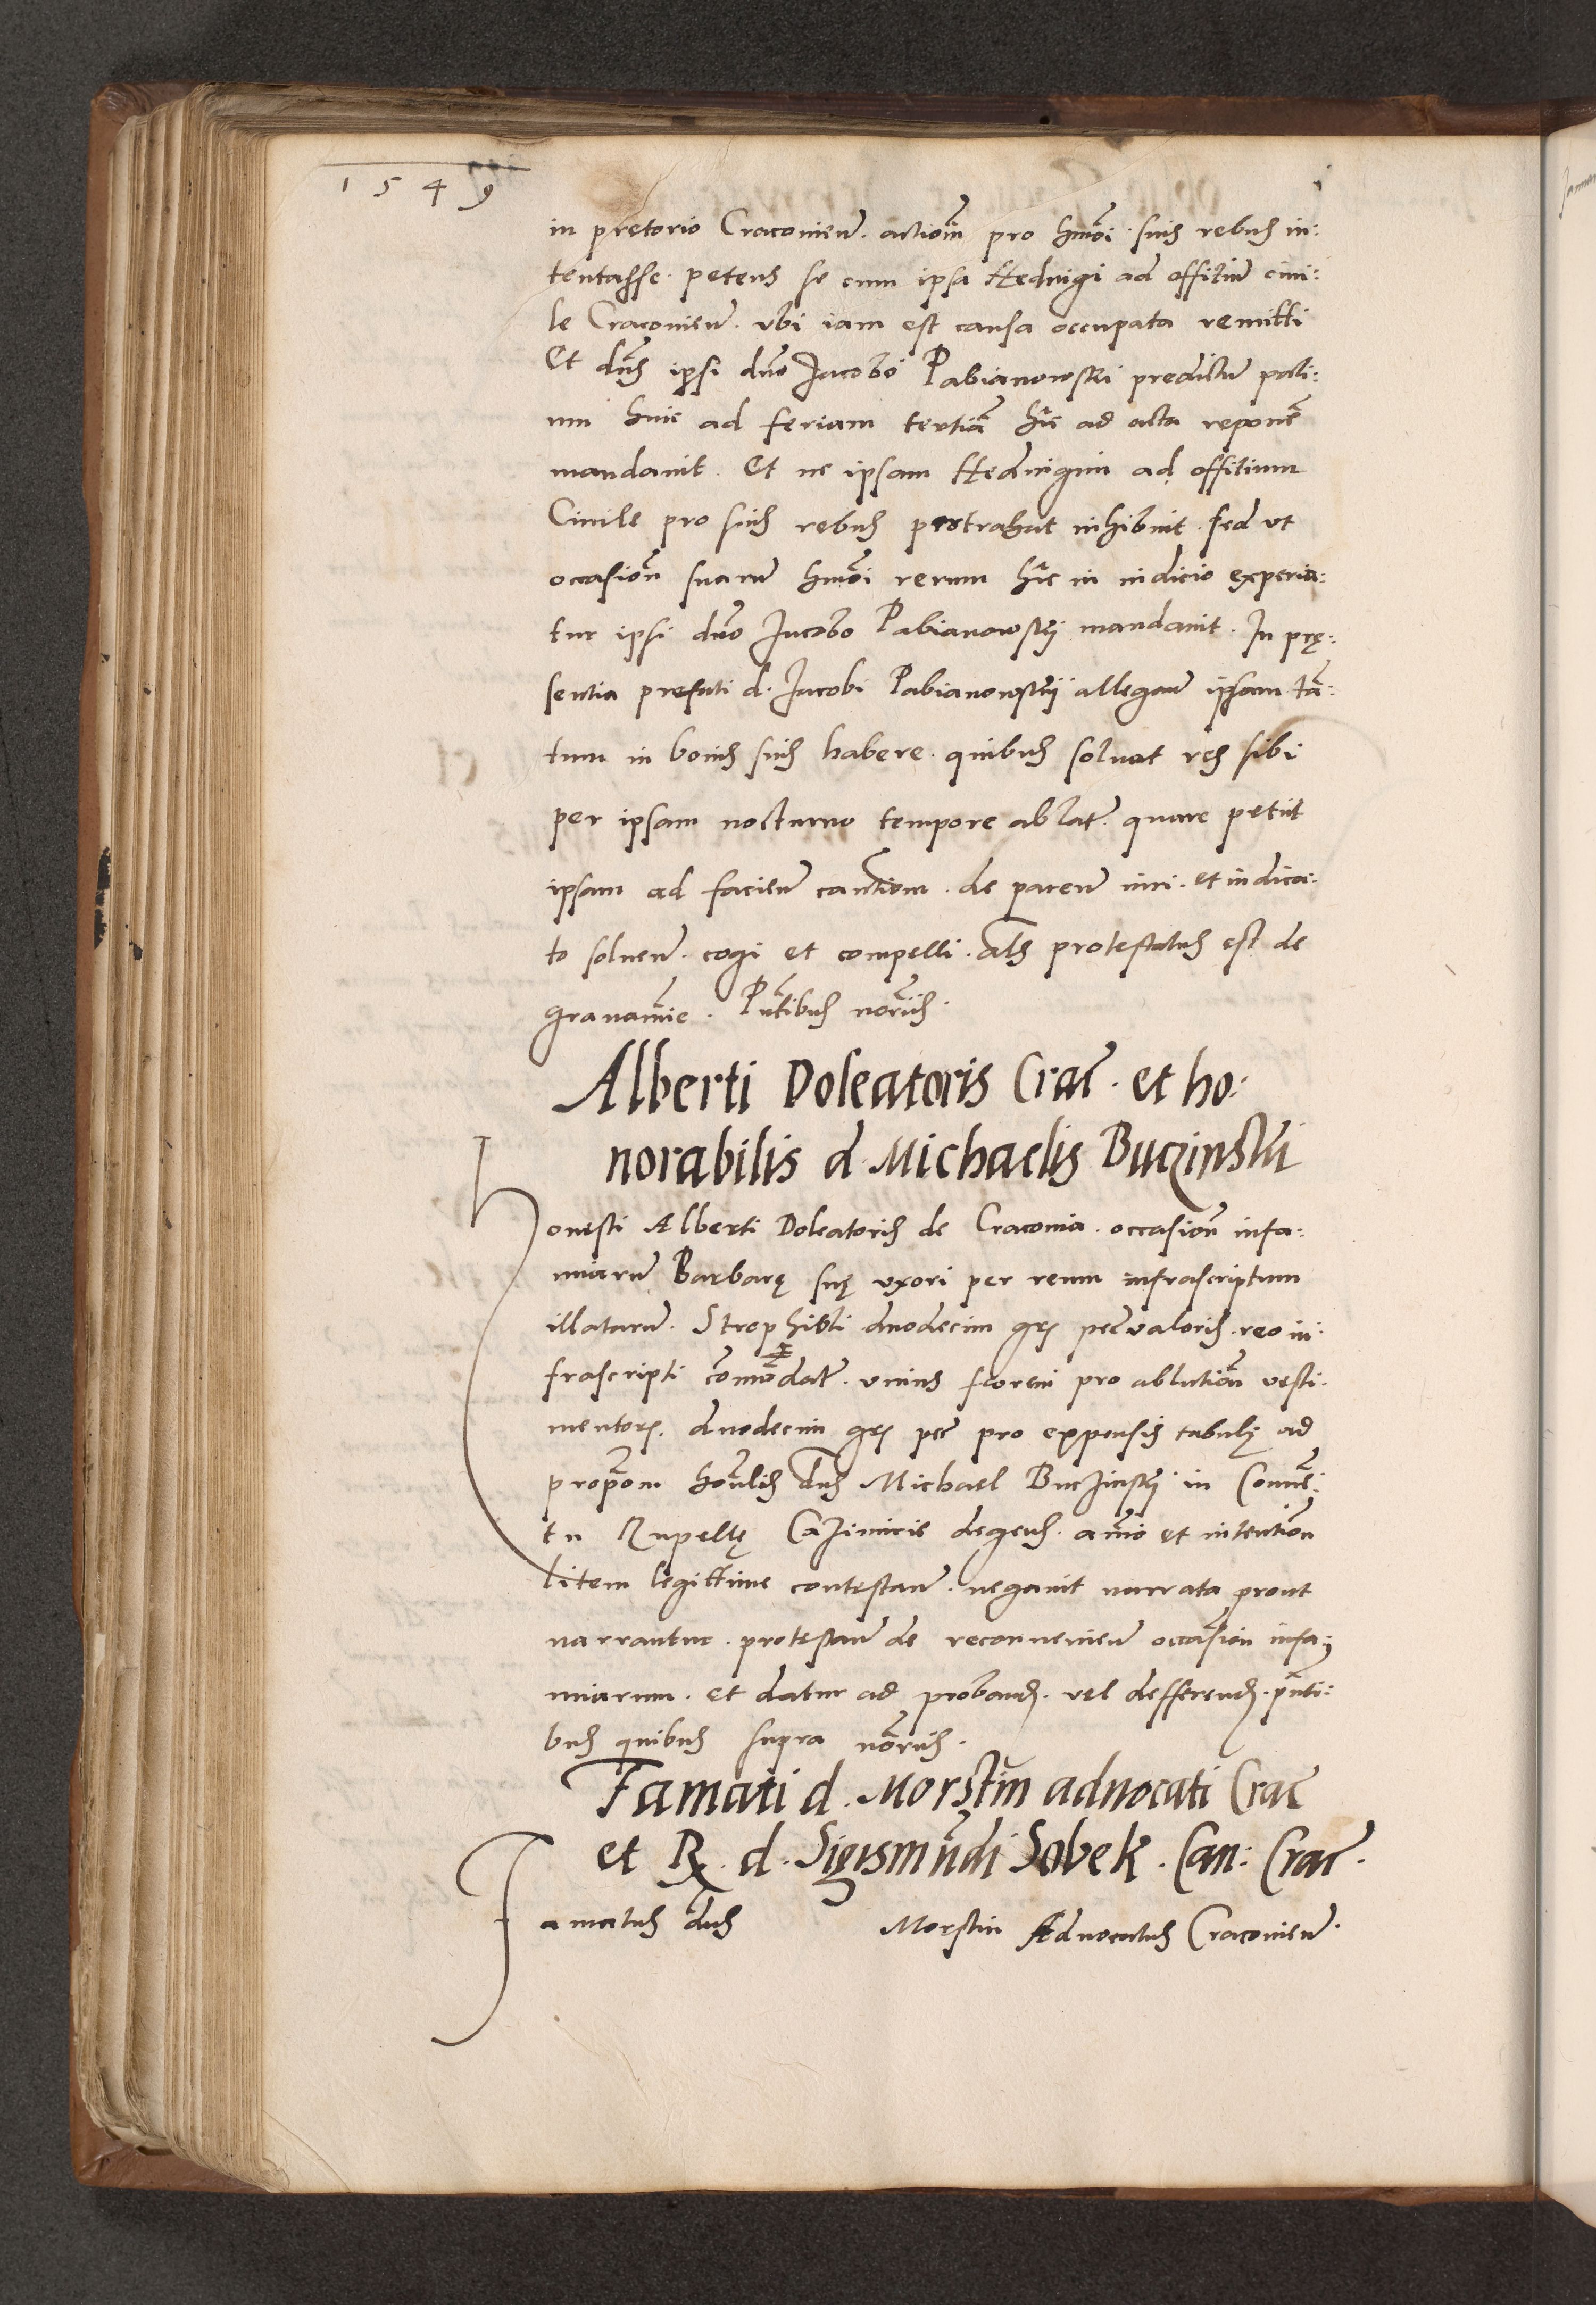 1549
in pretorio Craconien̄. actiōm̄ pro hm̄ōi suis rebus in:
tentasse. petens se cum ipsa Heduigi ad offitiū ciui:
le Craconien̄. vbi iam est causa occupata remitti
Et dn̄s ipsi dn̄o Jacobo Pabianowskÿ predictū pati:
um huic ad feriam tertiā hīc ad acta reponē
mandauit. Et ne ipsam Heduigim ad offitium
Ciuile pro suis rebus protrahat inhibuit. sed vt
occasiōn̄ suarū hm̄ōi rerum hīc in iudicio experia:
tur ipsi dn̄o Jacobo Pabianowskÿ mandauit. In prę:
sentia prefati d. Jacobi Pabianowskÿ allegan̄ ipsam tā:
tum in bonis suis habere. quibus soluat res sibi
per ipsam nocturno tempore ablat̄. quare petiit
ipsam ad facien̄ cautiom̄. de paren̄ iuri. et iudica:
to soluen̄. cogi et compelli. als̄ protestatus est de
grauam̄ie. Pn̄tibus notarijs.
Alberti Doleatoris Crac̄. et ho:
norabilis d Michaelis Buczinskÿ
Honesti Alberti Doleatoris de Craconia. occasiōn̄ infa:
miarū Barbarę suę vxori per reum infrascriptum
illatarū. Strophibli duodecim grs pec̄ valoris. reo in:
frascripti cōmōdat̄. vnius floreni pro ablutiōn̄ vesti:
mentors. duodecim grs pec̄ pro expensis tabulę ad
propōm hon̄lis dn̄s Michael Buczinskÿ in Conuē:
tu Rupellę Cazimirie degens. am̄io et intentiōn
litem legittime contestan̄. negauit narrata prout
narrantur. protestan̄ de reconuenien̄ occāsion infa:
miarum. et datur ad proband. vel defferend. pn̄ti:
bus quibus supra notarijs.
Famati d. Morstin aduocati Crac̄
et Rx. d. Sigismūdi Sobek. Can: Crac̄.
Famatus dn̄s Morstin Aduocatus Craconien̄.